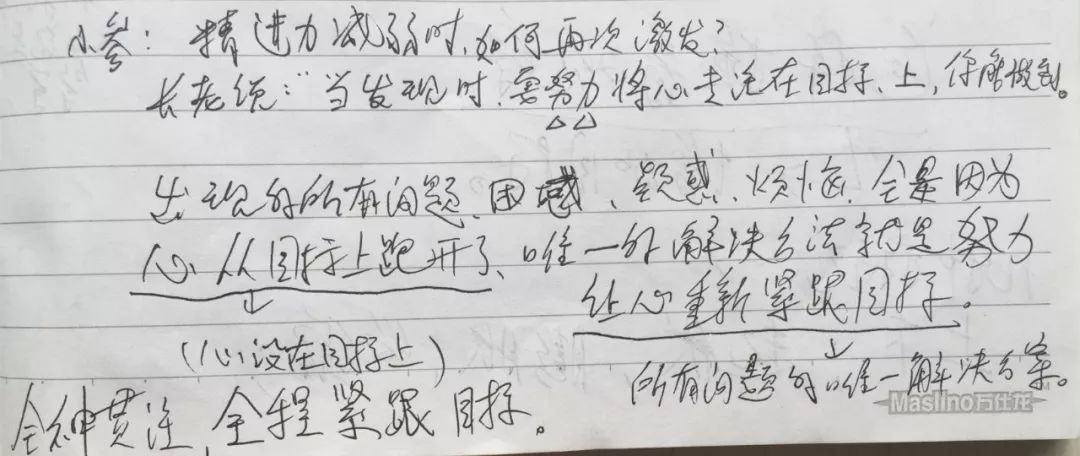 小参：精进力减弱时，如何再次激发？
长老说：“当发现时，要努力将心专注在目标上，你能做到。
出现的所有问题、困惑、疑惑、烦恼，全是因为
心从目标上跑开了、唯一的解决方法就是努力
让心重新紧跟目标。
（心没在目标上）
所有问题的唯一解决方案。
全神贯注，全程紧跟目标。
Maslino万仕龙